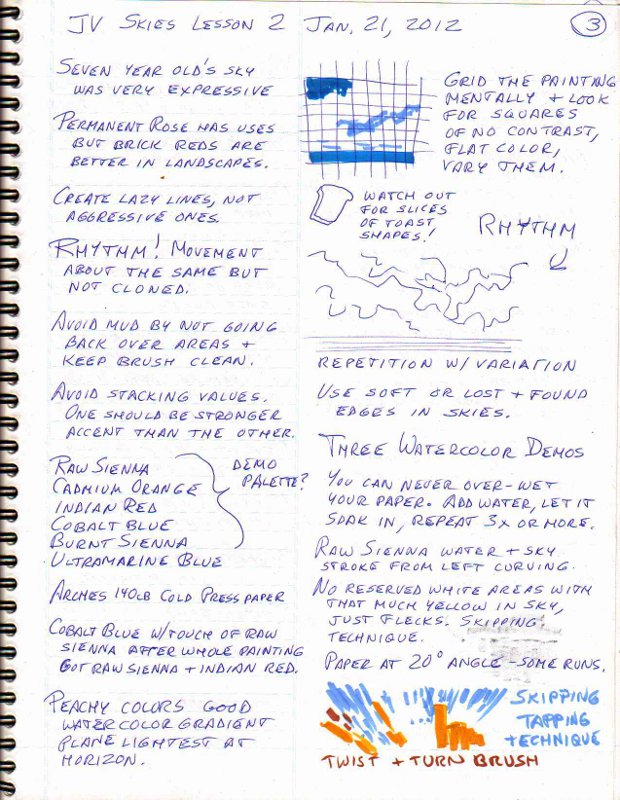 JV Skies Lesson 2 Jan. 21, 2012 3
SEVEN YEAR OLD'S SKY
WAS VERY EXPRESSIVE
PERMANENT ROSE HAS USES
BUT BRICK REDS ARE
BETTER IN LANDSCAPES.
CREATE LAZY LINES, NOT
AGGRESSIVE ONES.
RHYTHM! MOVEMENT
ABOUT THE SAME BUT
NOT CLONED.
AVOID MUD BY NOT GOING
BACK OVER AREAS +
KEEP BRUSH CLEAN.
AVOID STACKING VALUES.
ONE SHOULD BE STRONGER
ACCENT THAN THE OTHER.
RAW SIENNA
CADMIUM ORANGE
INDIAN RED
COBALT BLUE
BURNT SIENNA
ULTRAMARINE BLUE
DEMO
PALETTE?
ARCHES 140LB COLD PRESS PAPER
COBALT BLUE W/TOUCH OF RAW
SIENNA AFTER WHOLE PAINTING
GOT RAW SIENNA + INDIAN RED.
PEACHY COLORS GOOD
WATERCOLOR GRADIENT
PLANE LIGHTEST AT
HORIZON.
GRID THE PAINTING
MENTALLY + LOOK
FOR SQUARES
OF NO CONTRAST,
FLAT COLOR,
VARY THEM.
WATCH OUT
FOR SLICES
OF TOAST
SHAPES!
RHYTHM
REPETITION W/ VARIATION
USE SOFT OR LOST + FOUND
EDGES IN SKIES.
THREE WATERCOLOR DEMOS
YOU CAN NEVER OVER-WET
YOUR PAPER. ADD WATER, LET IT
SOAK IN, REPEAT 3X OR MORE.
RAW SIENNA WATER + SKY
STROKE FROM LEFT CURVING.
NO RESERVED WHITE AREAS WITH
THAT MUCH YELLOW IN SKY,
JUST FLECKS. SKIPPING
TECHNIQUE.
PAPER AT 20° ANGLE - SOME RUNS.
SKIPPING
TAPPING
TECHNIQUE
TWIST + TURN BRUSH